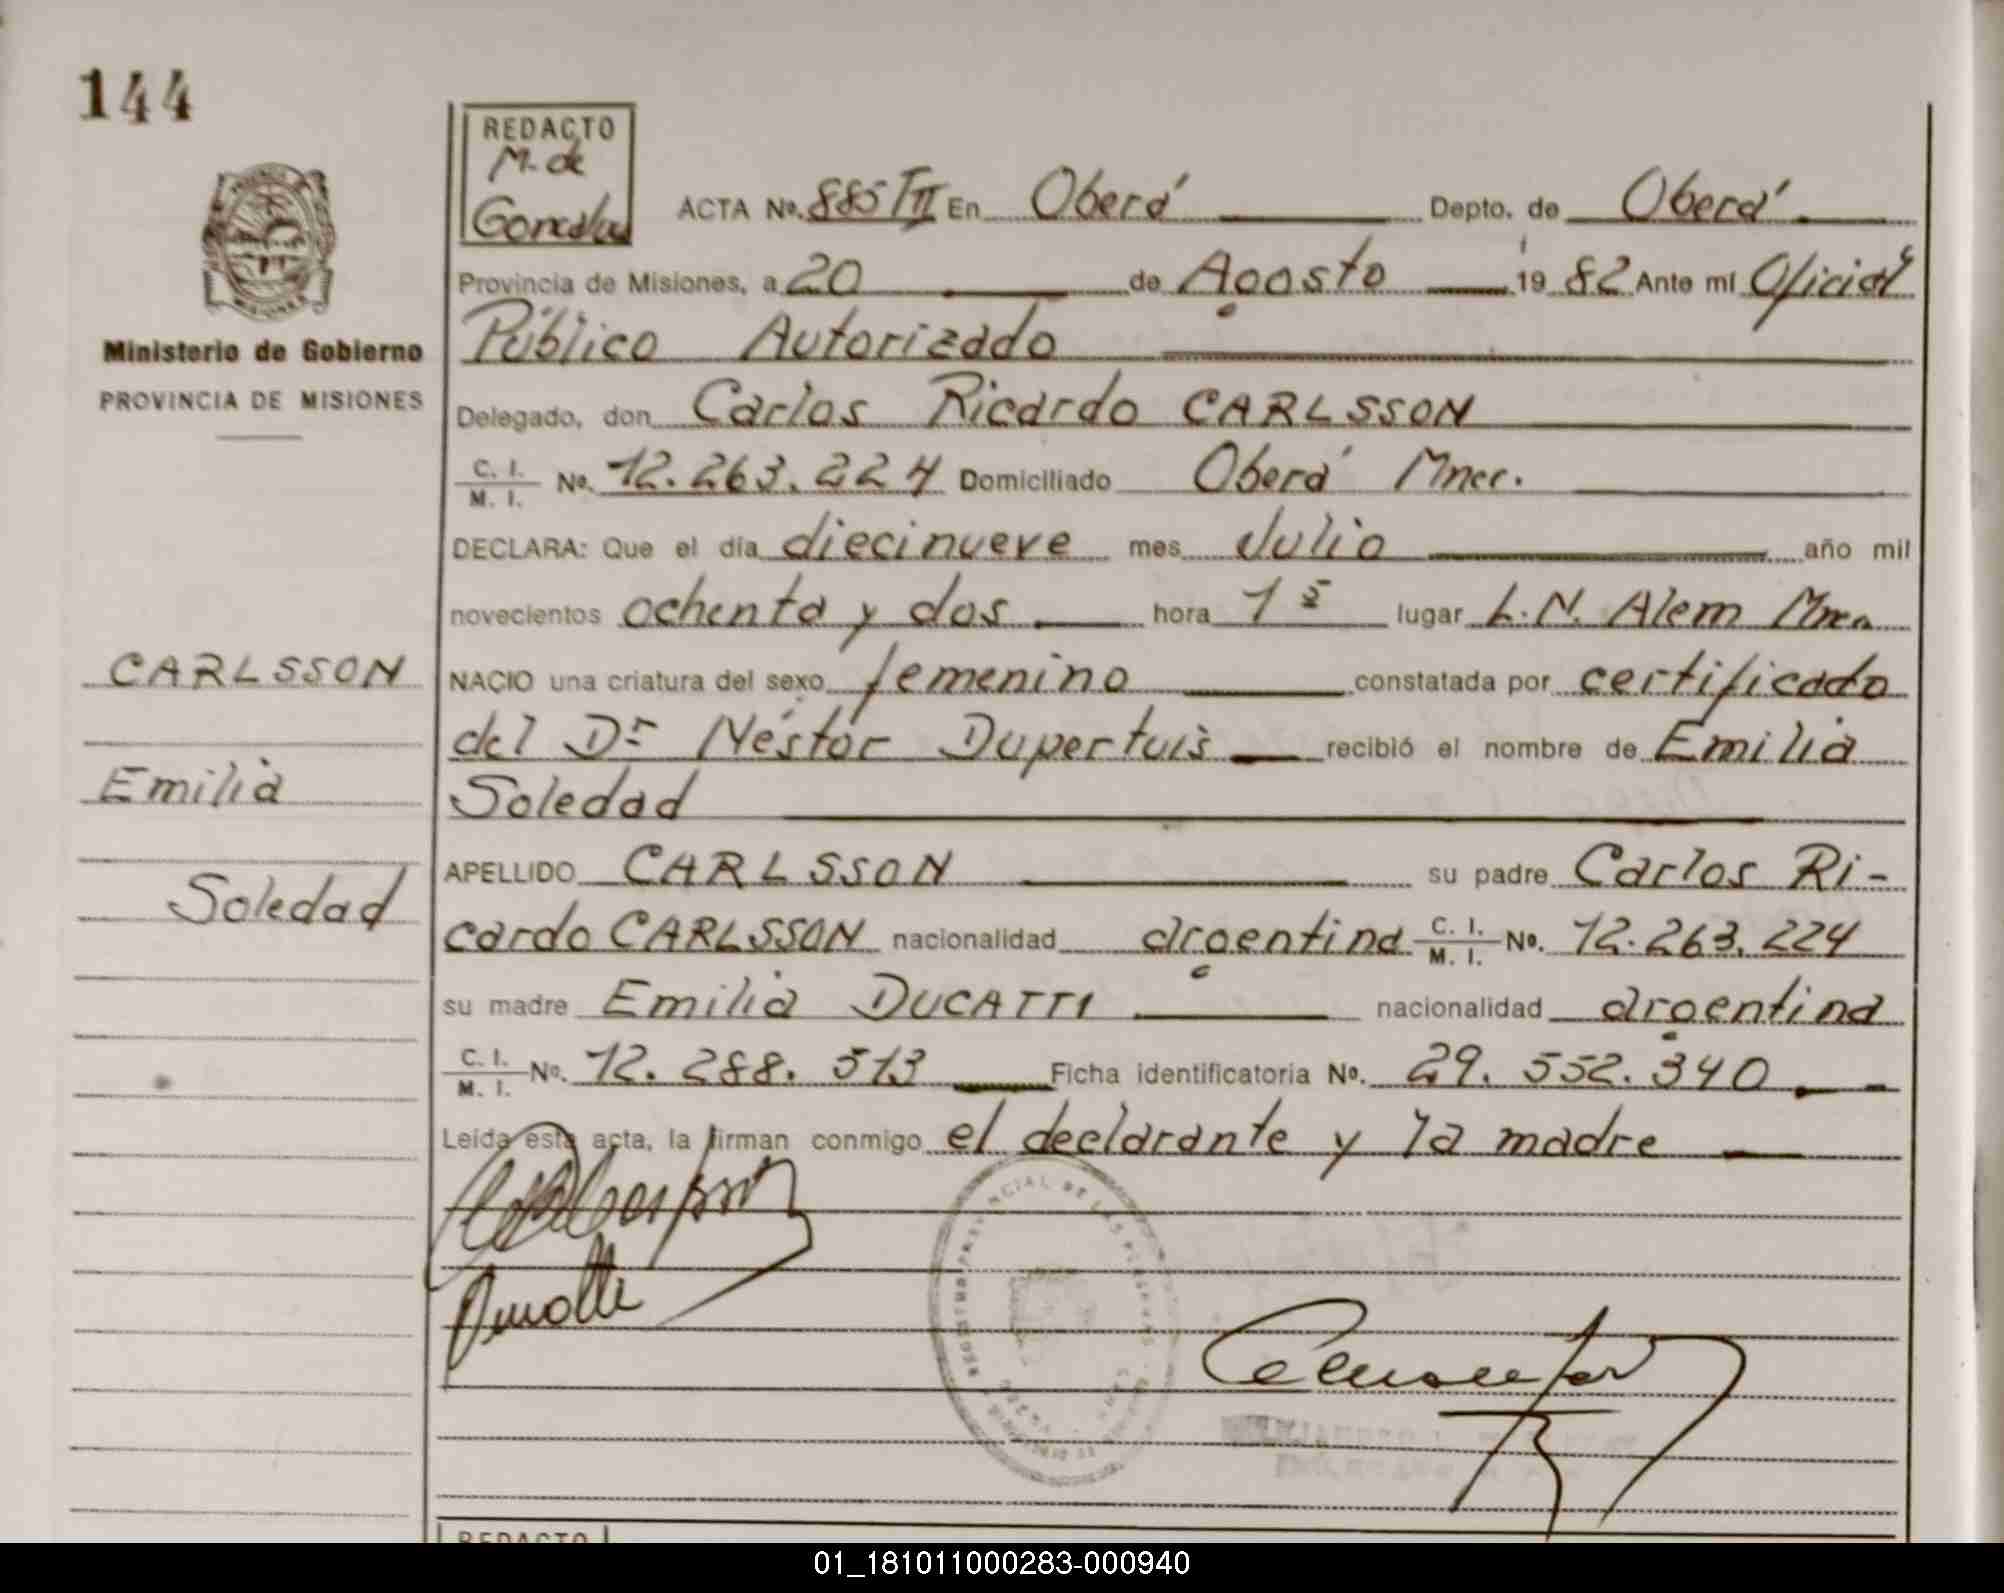 144
REDACTO
M. de
Gonzalez
ACTA Nº. 885 TII En Oberá Depto. de Oberá
Provincia de Misiones, a 20 de Agosto 19 82 Ante mí Oficial
Público Autorizado
Ministerio de Gobierno
PROVINCIA DE MISIONES
Delegado, don Carlos Ricardo CARLSSON
C. I.
M. I. Nº. 12.263.224 Domiciliado Oberá Mnes.
DECLARA: Que el día diecinueve mes Julio año mil
novecientos ochenta y dos hora 1 lugar L.N. Alem Mnes
CARLSSON
NACIO una criatura del sexo femenino constatada por certificado
del Dr Néstor Dupertuis recibió el nombre de Emilia
Emilia
Soledad
APELLIDO CARLSSON su padre Carlos Ri-
Soledad
cardo CARLSSON nacionalidad argentina C. I.
M. I. Nº. 12.263.224
su madre Emilia DUCATTI nacionalidad argentina
C. I.
M. I. Nº. 12.288.513 Ficha identificatoria Nº. 29.552.340
Leída esta acta, la firman conmigo el declarante y la madre
REGISTRO PROVINCIAL DE LAS PERSONAS
REDACTO
01_181011000283-000940